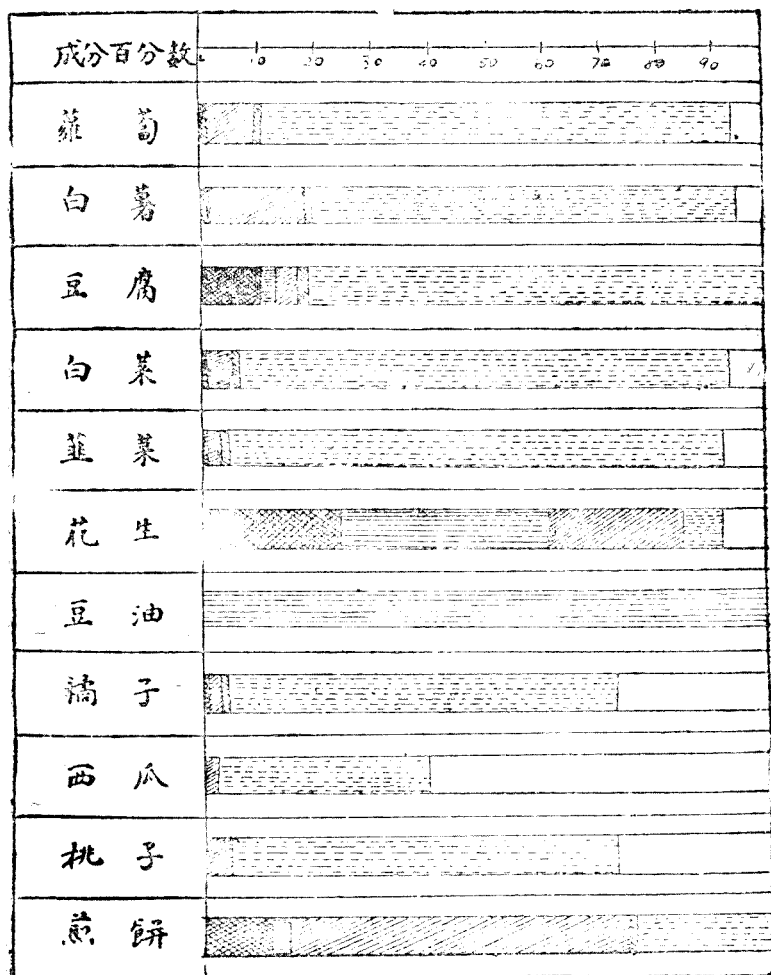 成分百分数 10 20 30 40 50 60 70 80 90
蘿蔔
白薯
豆腐
白菜
韮菜
花生
豆油
橘子
西瓜
桃子
煎餅